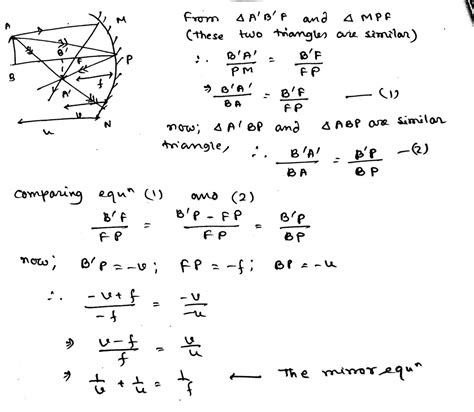 A
M
B
B'
F
P
A'
f
v
N
u
From △ A'B'P and △ MPF
(these two triangles are similar)
∴ B'A'/PM = B'F/FP
⇒ B'A'/BA = B'F/FP — (1)
now; △ A'BP and △ABP are similar
triangle, ∴ B'A'/BA = B'P/BP —(2)
comparing equⁿ (1) and (2)
B'F/FP = B'P - FP/FP = B'P/BP
now; B'P = -v; FP = -f; BP = -u
∴ -v+f/-f = -v/-u
⇒ v-f/f = v/u
⇒ 1/v + 1/u = 1/f ← The mirror equⁿ